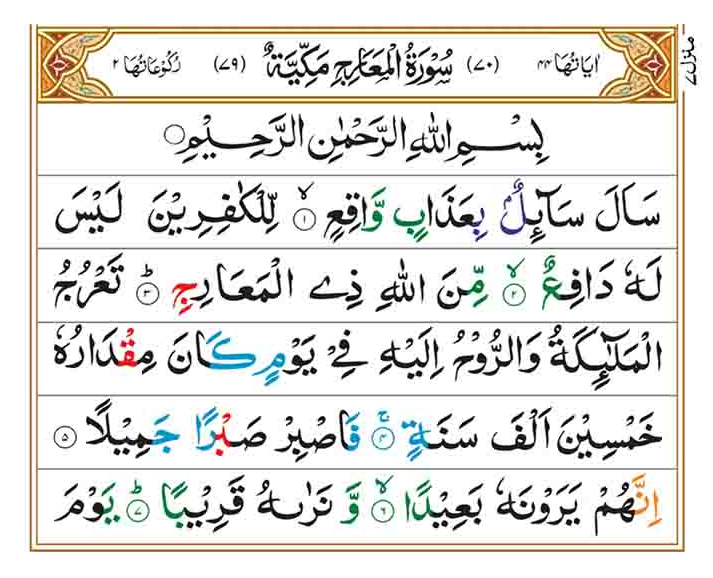 اٰیَاتُهَا ۴۴ (۷۰) سُوْرَةُ الْمَعَارِجِ مَكِّیَّةٌ (۷۹) رُكُوْعَاتُهَا ۲
منزل ۷
بِسْمِ اللّٰهِ الرَّحْمٰنِ الرَّحِیْمِ ○
سَاَلَ سَآئِلٌۢ بِعَذَابٍ وَّاقِعٍ ۙ﴿۱﴾ لِّلْكٰفِرِیْنَ لَیْسَ
لَهٗ دَافِعٌ ۙ﴿۲﴾ مِّنَ اللّٰهِ ذِی الْمَعَارِجِ ؕ﴿۳﴾ تَعْرُجُ
الْمَلٰٓئِكَةُ وَالرُّوْحُ اِلَیْهِ فِیْ یَوْمٍ كَانَ مِقْدَارُهٗ
خَمْسِیْنَ اَلْفَ سَنَةٍ ۚ﴿۴﴾ فَاصْبِرْ صَبْرًا جَمِیْلًا ﴿۵﴾
اِنَّهُمْ یَرَوْنَهٗ بَعِیْدًا ۙ﴿۶﴾ وَّ نَرٰىهُ قَرِیْبًا ؕ﴿۷﴾ یَوْمَ